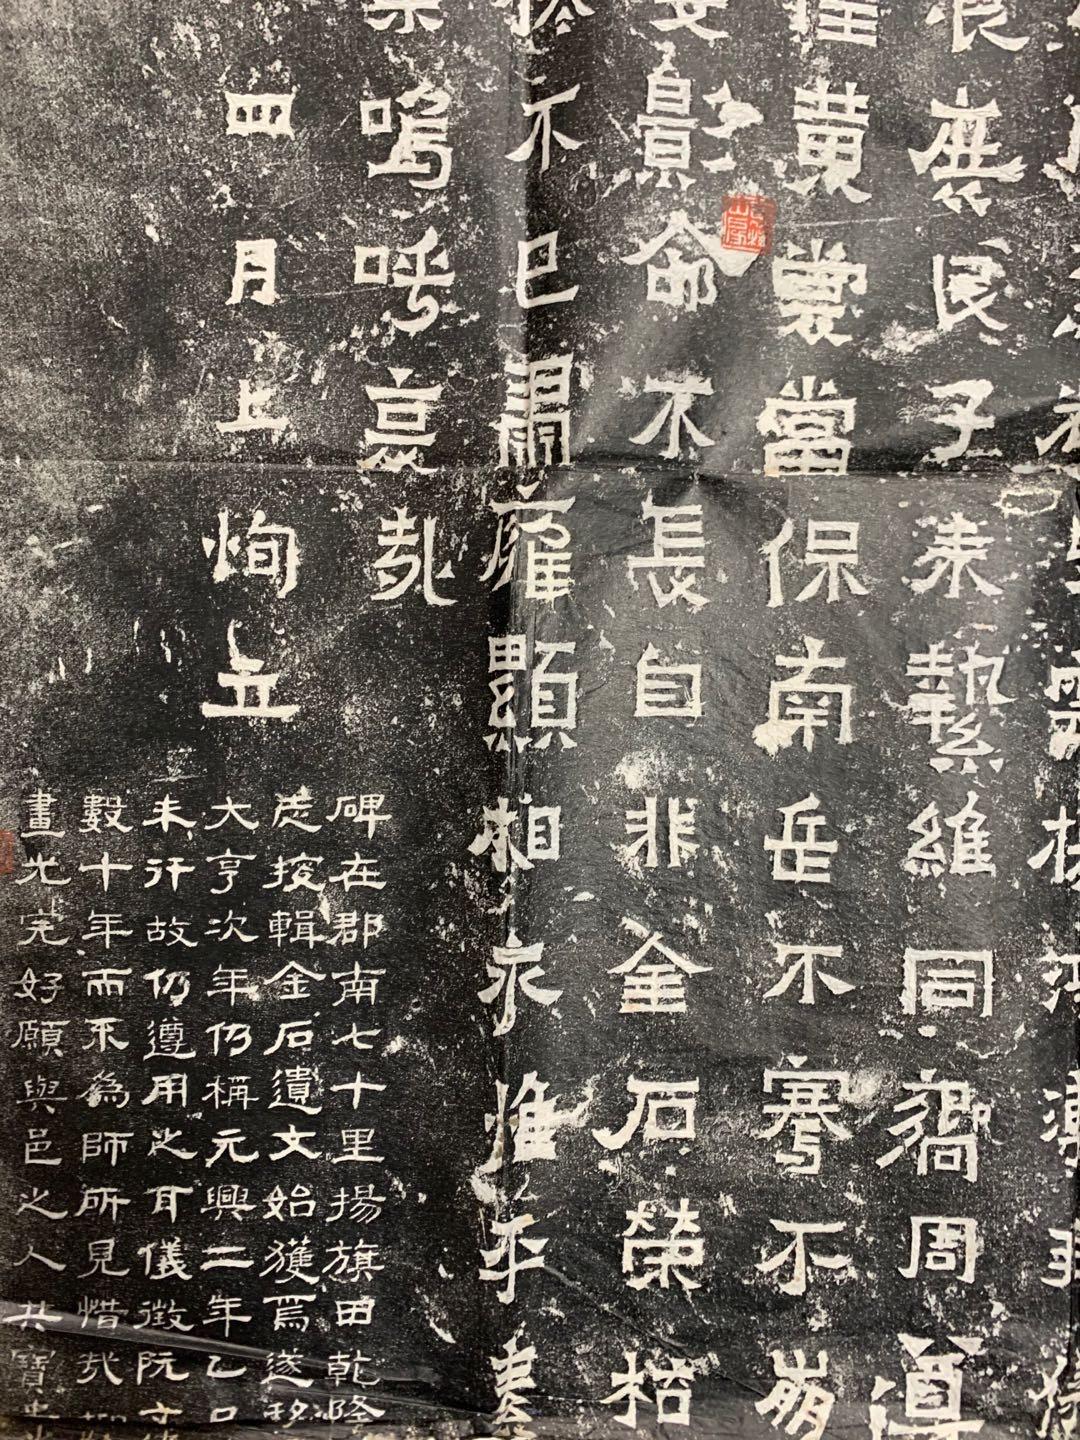 浪庶民子来縶維同嚮周遵
黄裳當保南岳不騫不崩
姿影命不長自非金石榮枯
不已肅雍顯相永惟平素
棠嗚呼哀哉
四月上恂立
碑在郡南七十里揚旗田乾隆
志搜輯金石遺文始獲焉遂移
大亨次年仍稱元興二年乙巳
未行故仍遵用之耳儀徵阮文達
數十年而不為師所見惜哉抑
畫尤完好願與邑之人共寶貴